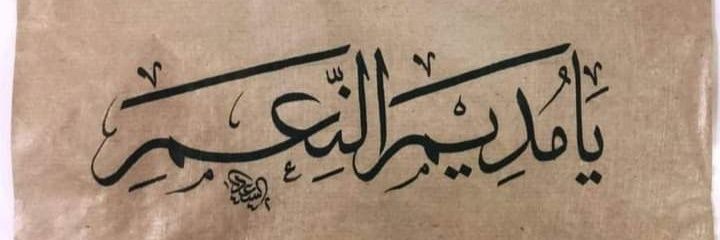 يَا مُدِيمَ النِّعَمِ